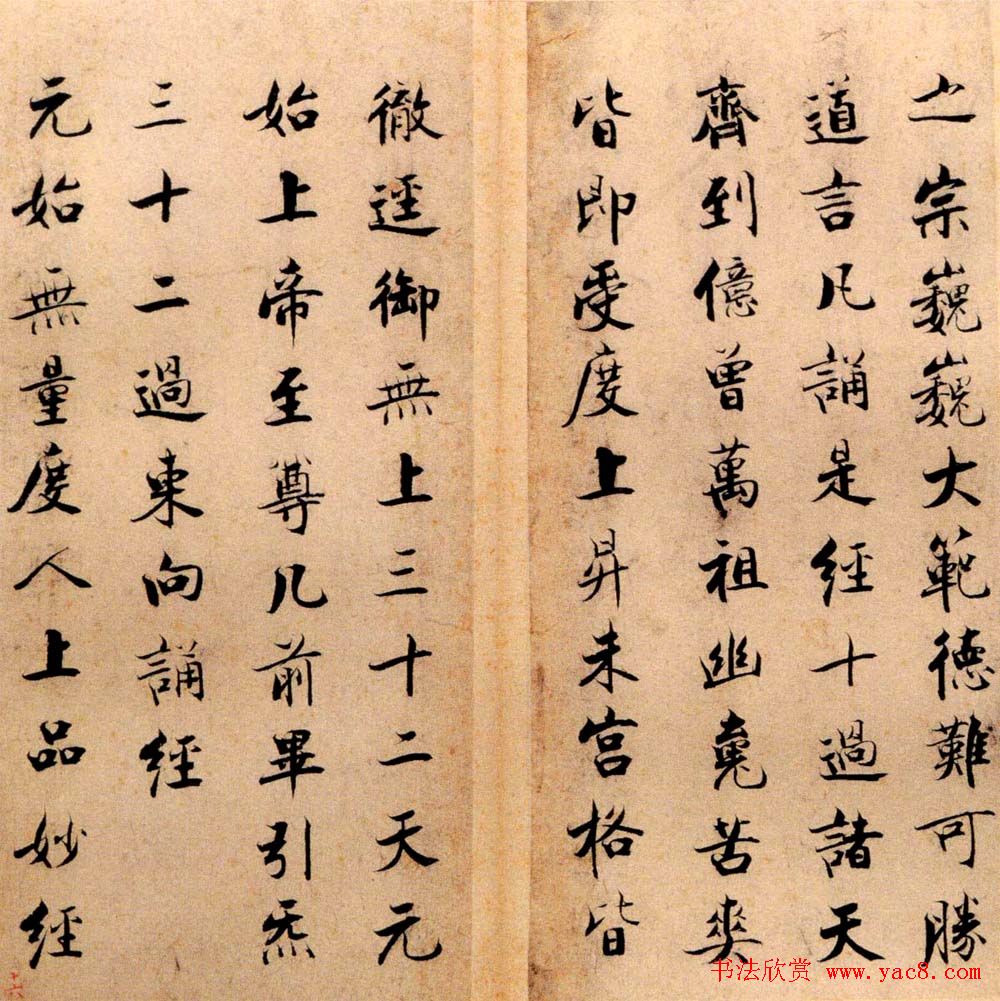 之宗巍巍大範德難可勝
道言凡誦是經十過諸天
齊到億曾萬祖幽䰟苦爽
皆即受度上昇朱宮格皆
徹逕御無上三十二天元
始上帝至尊几前畢引炁
三十二過東向誦經
元始無量度人上品妙經
十六
书法欣赏 www.yac8.com